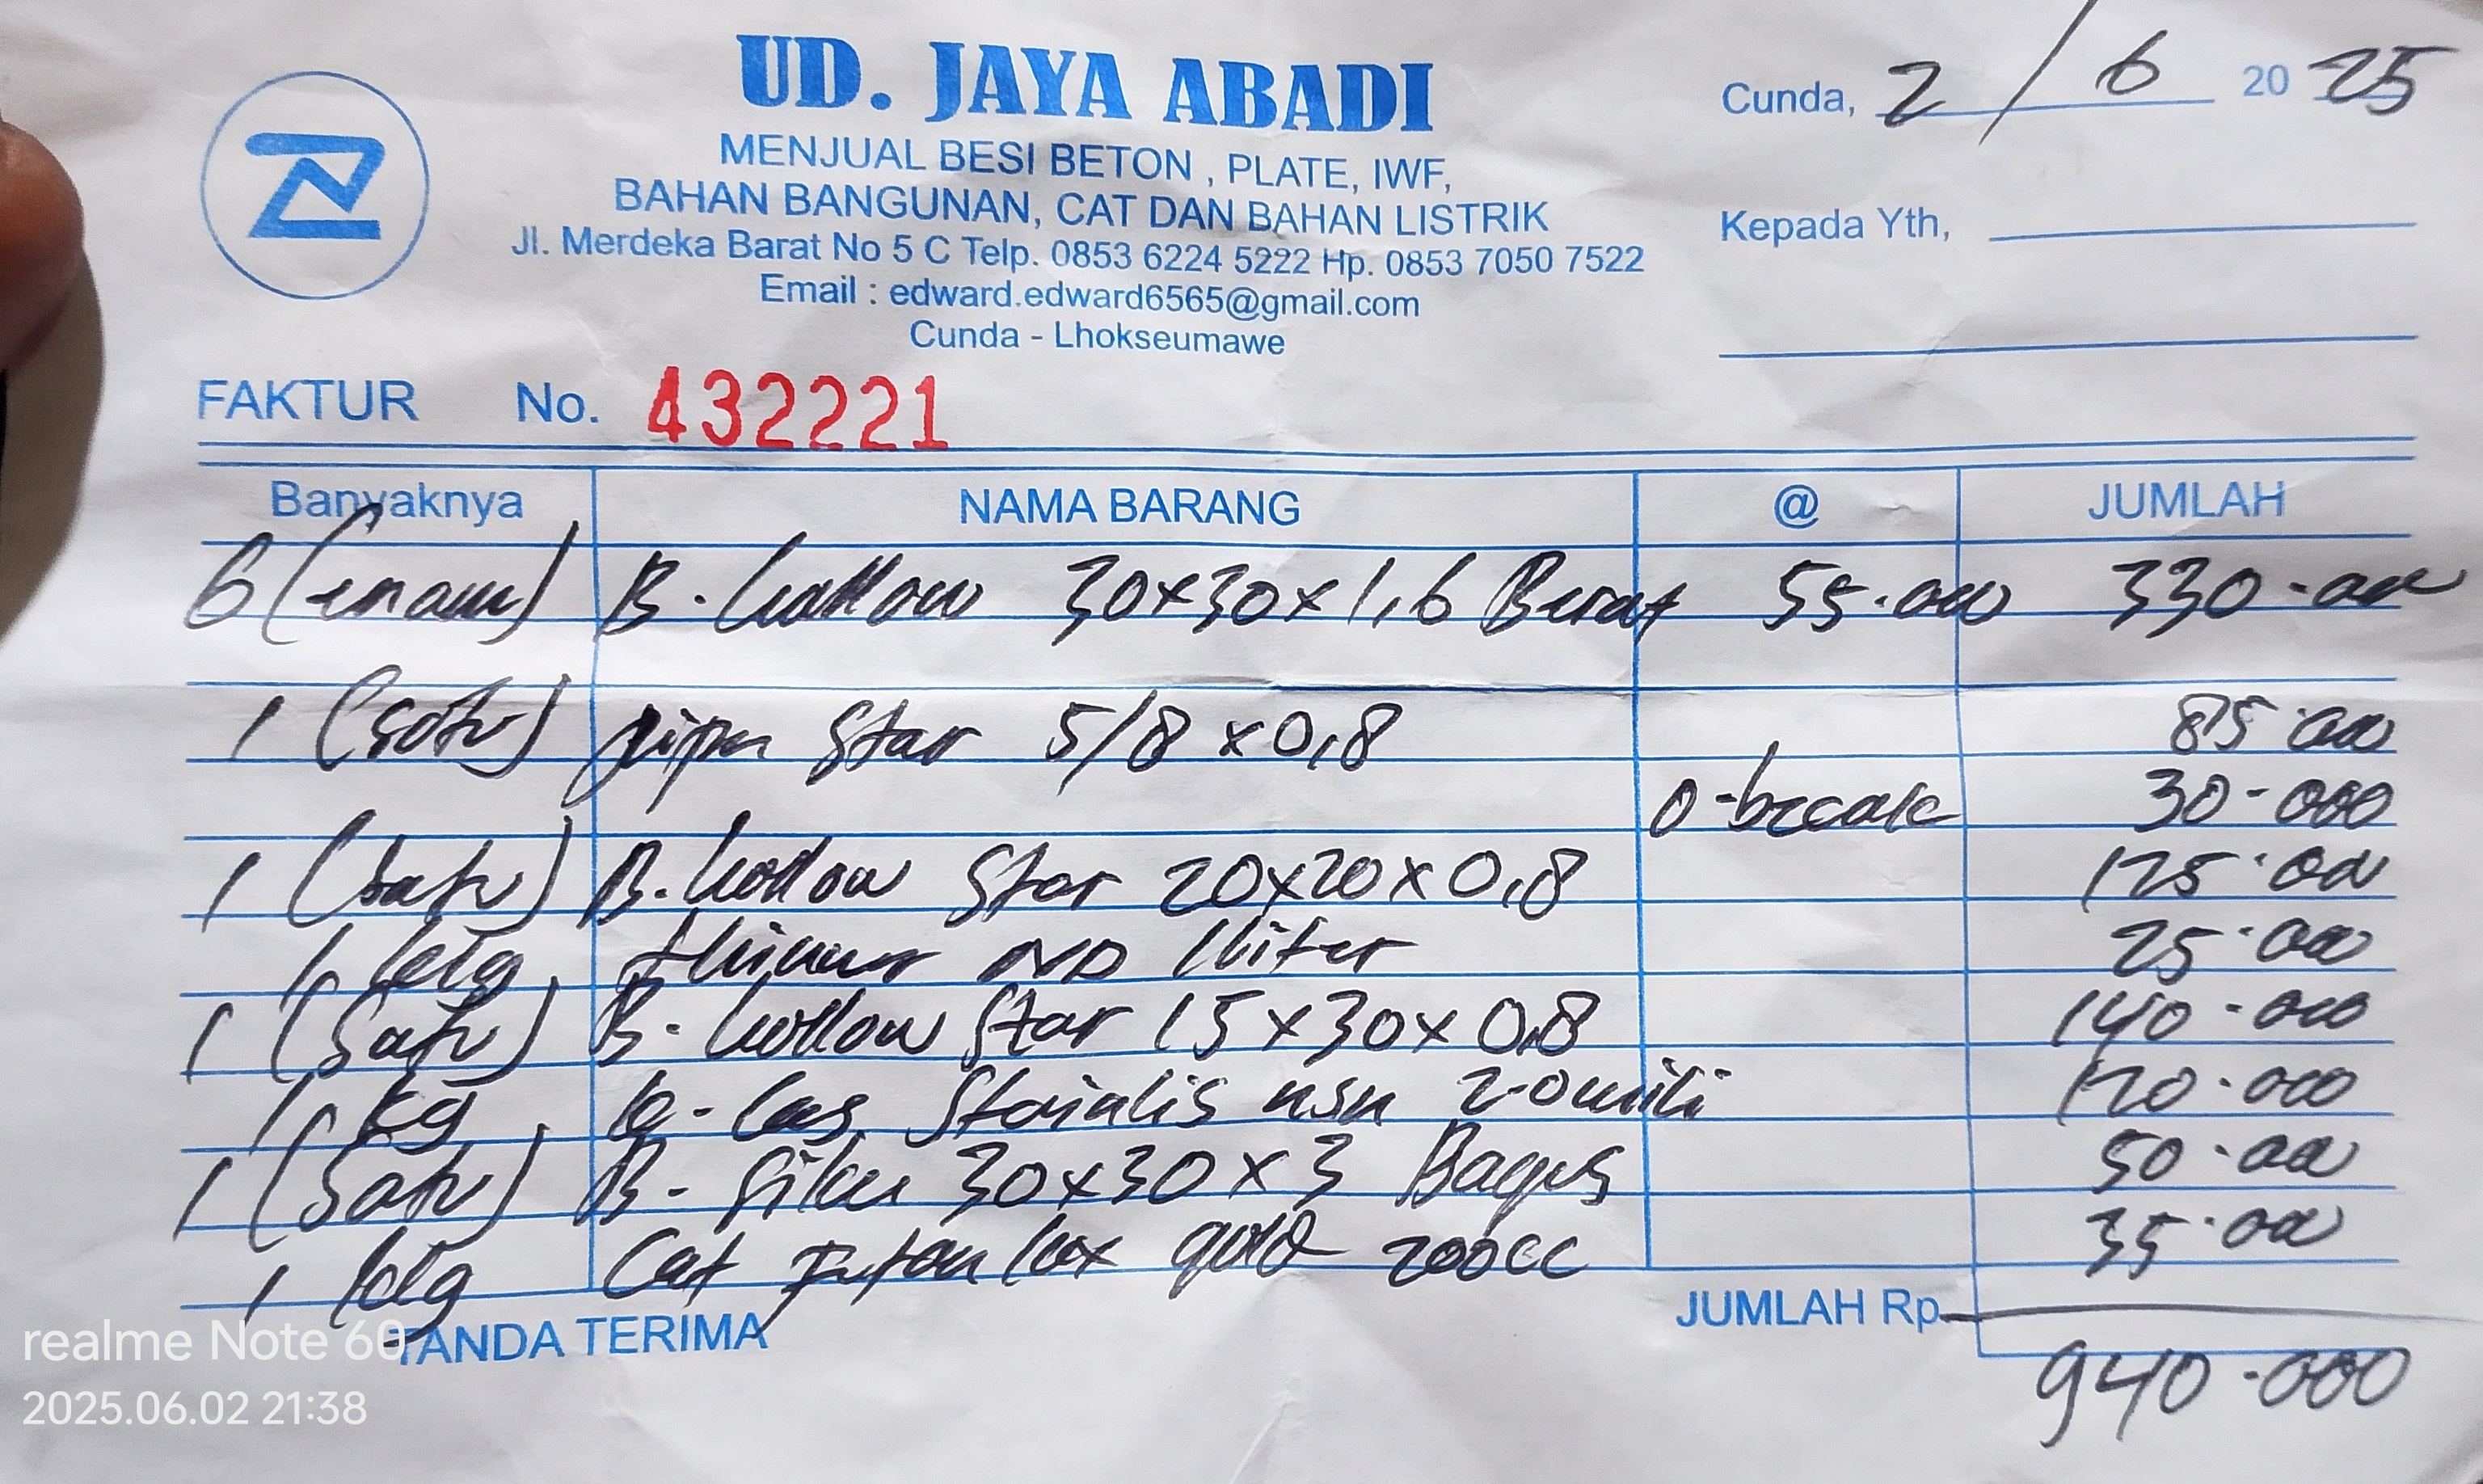 UD. JAYA ABADI
MENJUAL BESI BETON , PLATE, IWF,
BAHAN BANGUNAN, CAT DAN BAHAN LISTRIK
Jl. Merdeka Barat No 5 C Telp. 0853 6224 5222 Hp. 0853 7050 7522
Email : edward.edward6565@gmail.com
Cunda - Lhokseumawe
Cunda, 2 / 6 20 25
Kepada Yth,
FAKTUR No. 432221
Banyaknya NAMA BARANG @ JUMLAH
6 (enam) B. hollow 30x30x1,6 Berat 55.000 330.000
1 (satu) pipa Star 5/8 x 0,8 85.000
30-000
1 (satu) B. hollow Star 20x20x0,8 125.000
1 klg thinner ND 1 liter 25.000
1 (satu) B. hollow Star 15x30x0,8 140-000
1 kg k. las nsn 2.0 mili 120.000
1 (satu) B. Siku 30x30x3 Bagus 50.000
1 klg Cat lux gold 200cc 35.000
TANDA TERIMA JUMLAH Rp 940.000
realme Note 60
2025.06.02 21:38